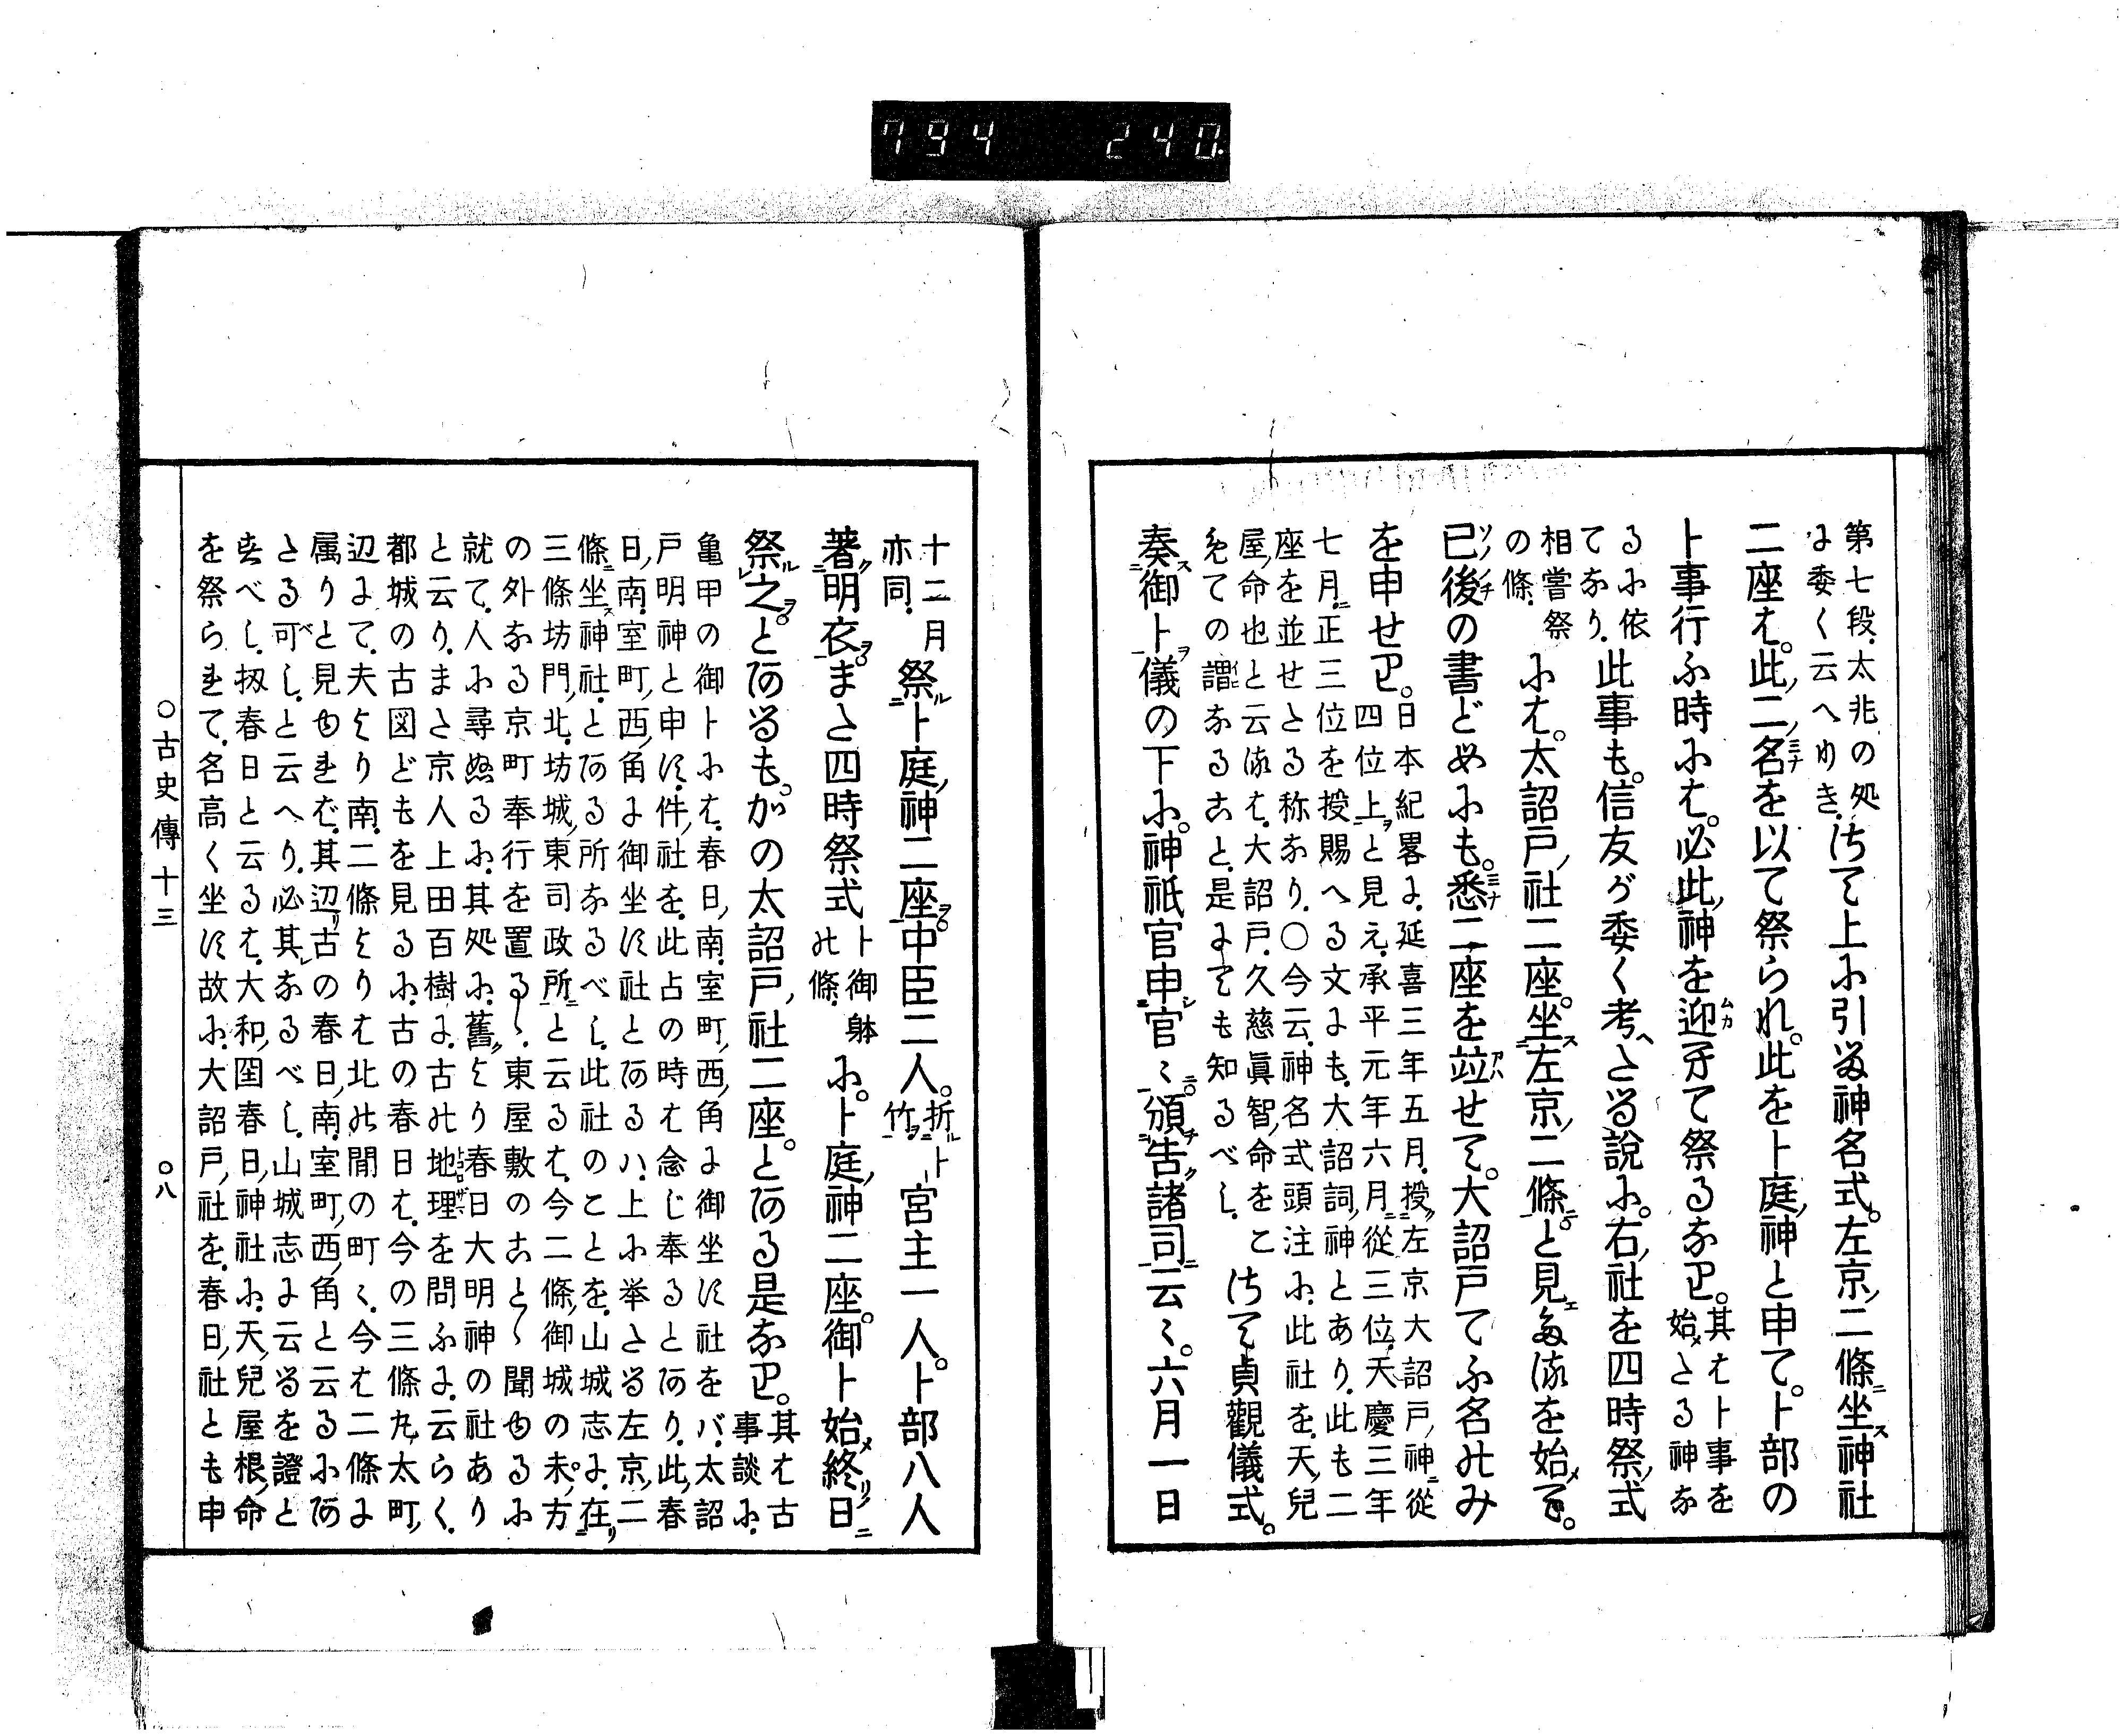 794 240
第七段太兆の処
に委く云へりき
さて上に引る神名式。左京二條坐神社
二座は。此二名を以て祭られ。此を卜庭神と申て。卜部の
卜事行ふ時には。必此神を迎予て祭るなり。
其は卜事を
始たる神な
るに依
てなり
此事も。信友が委く考へたる説に。右社を四時祭式
相嘗祭
の條
には。太詔戸社二座。坐左京二條と見えたるを始て。
已後の書どめにも。悉二座を竝せて。大詔戸てふ名のみ
を申せり。
日本紀畧に延喜三年五月授左京大詔戸神從
四位上と見え承平元年六月從三位天慶三年
七月正三位を授賜へる文にも大詔詞神とあり此も二
座を並せたる称なり〇今云神名式頭注に此社を天兒
屋命也と云るは大詔戸久慈眞智命をこ
めての謂なること是にても知るべし
さて貞觀儀式。
奏御卜儀の下に。神祇官申官〻。頒告諸司云〻。六月一日
十二月
亦同
祭卜庭神二座。中臣二人。
折卜
竹
宮主一人。卜部八人
著明衣。また四時祭式
卜御躰
の條
に。卜庭神二座。御卜始終日
祭之。とあるも。かの太詔戸社二座。とある是なり。
其は古
事談に
亀甲の御卜には春日南室町西角に御坐す社をバ太詔
戸明神と申す件社を此占の時は念じ奉るとあり此春
日南室町西角に御坐す社とあるハ上に挙たる左京二
條坐神社とある所なるべし此社のことを山城志に在
三條坊門北坊城東司政所と云るは今二條御城の未方
の外なる京町奉行を置るゝ東屋敷のことゝ聞ゆるに
就て人に尋ぬるに其処に舊より春日大明神の社あり
と云りまた京人上田百樹に古の地理を問ふに云らく
都城の古図どもを見るに古の春日は今の三條丸太町
辺にて夫より南二條よりは北の間の町〻今は二條に
属りと見ゆれば其辺古の春日南室町西角と云るにあ
たる可しと云へり必其なるべし山城志に云るを證と
すべし扨春日と云るは大和国春日神社に天兒屋根命
を祭られて名高く坐す故に大詔戸社を春日社とも申
〇古史傳十三 〇八